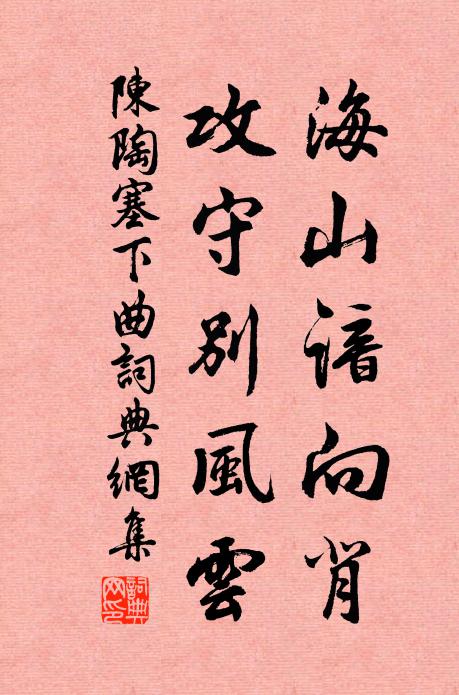 海山諳向背
攻守別風雲
陳陶塞下曲詞典網集
詞典网印